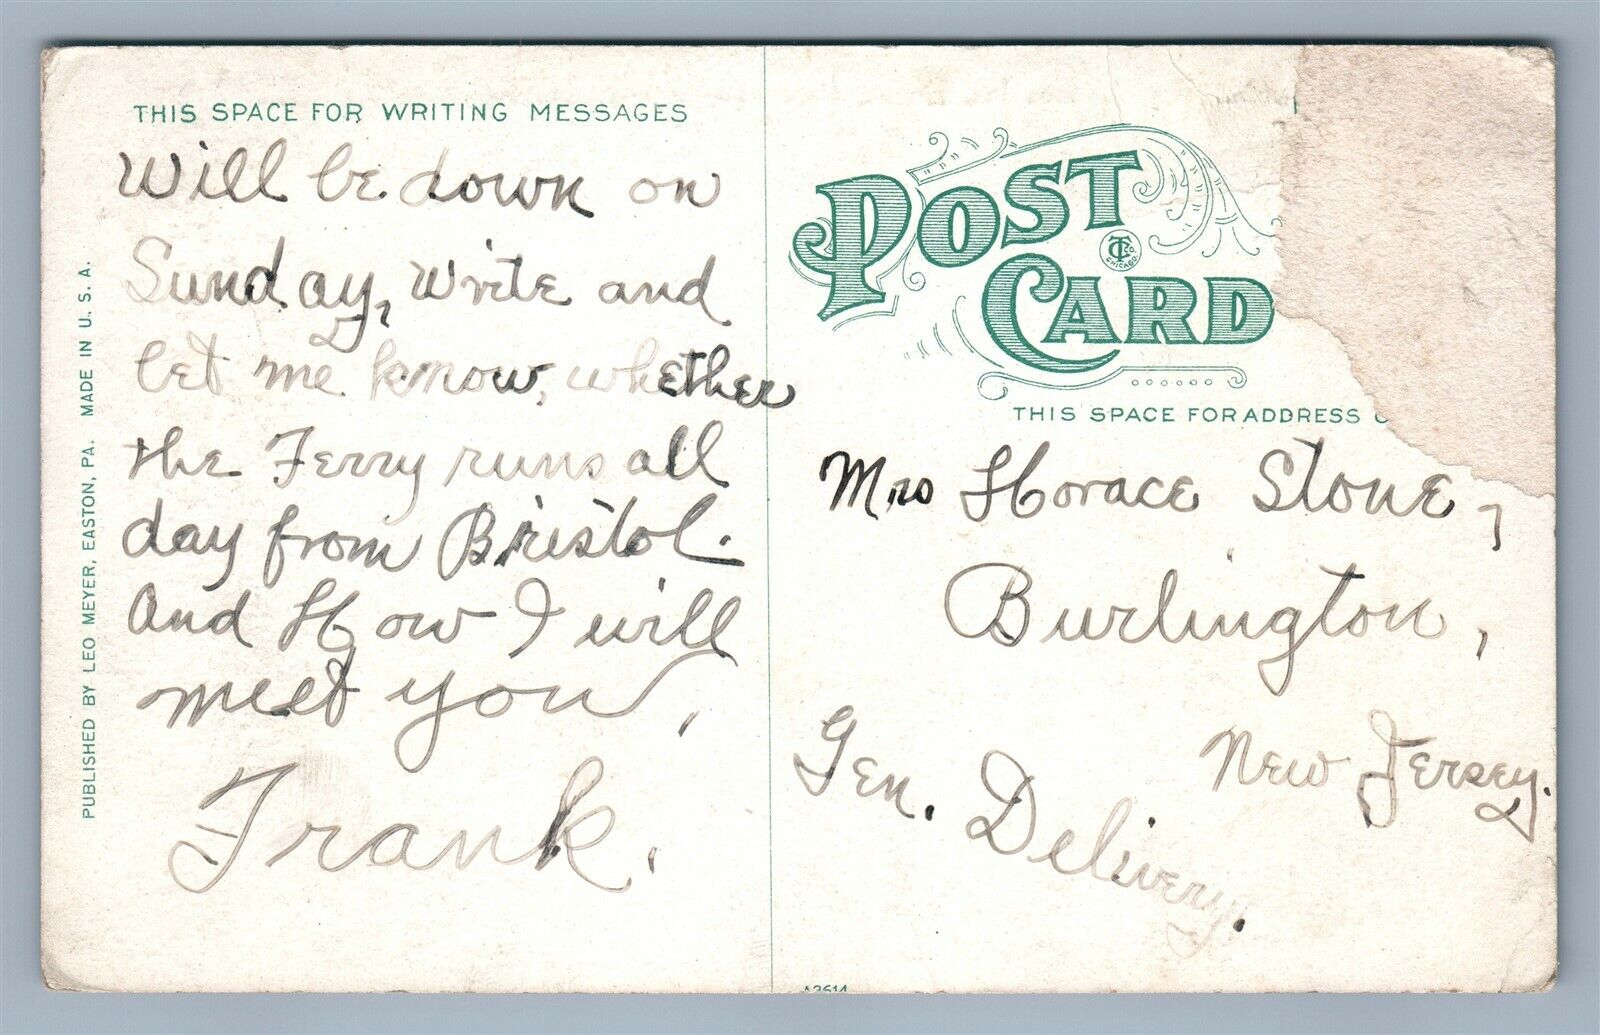 THIS SPACE FOR WRITING MESSAGES
Will be down on
Sunday, Write and
let me know, whether
the Ferry runs all
day from Bristol.
And How I will
meet you,
Frank.
PUBLISHED BY LEO MEYER, EASTON, PA. MADE IN U. S. A.
POST
CARD
CT Co.
CHICAGO.
THIS SPACE FOR ADDRESS
Mrs Horace Stone,
Burlington,
New Jersey.
Gen. Delivery.